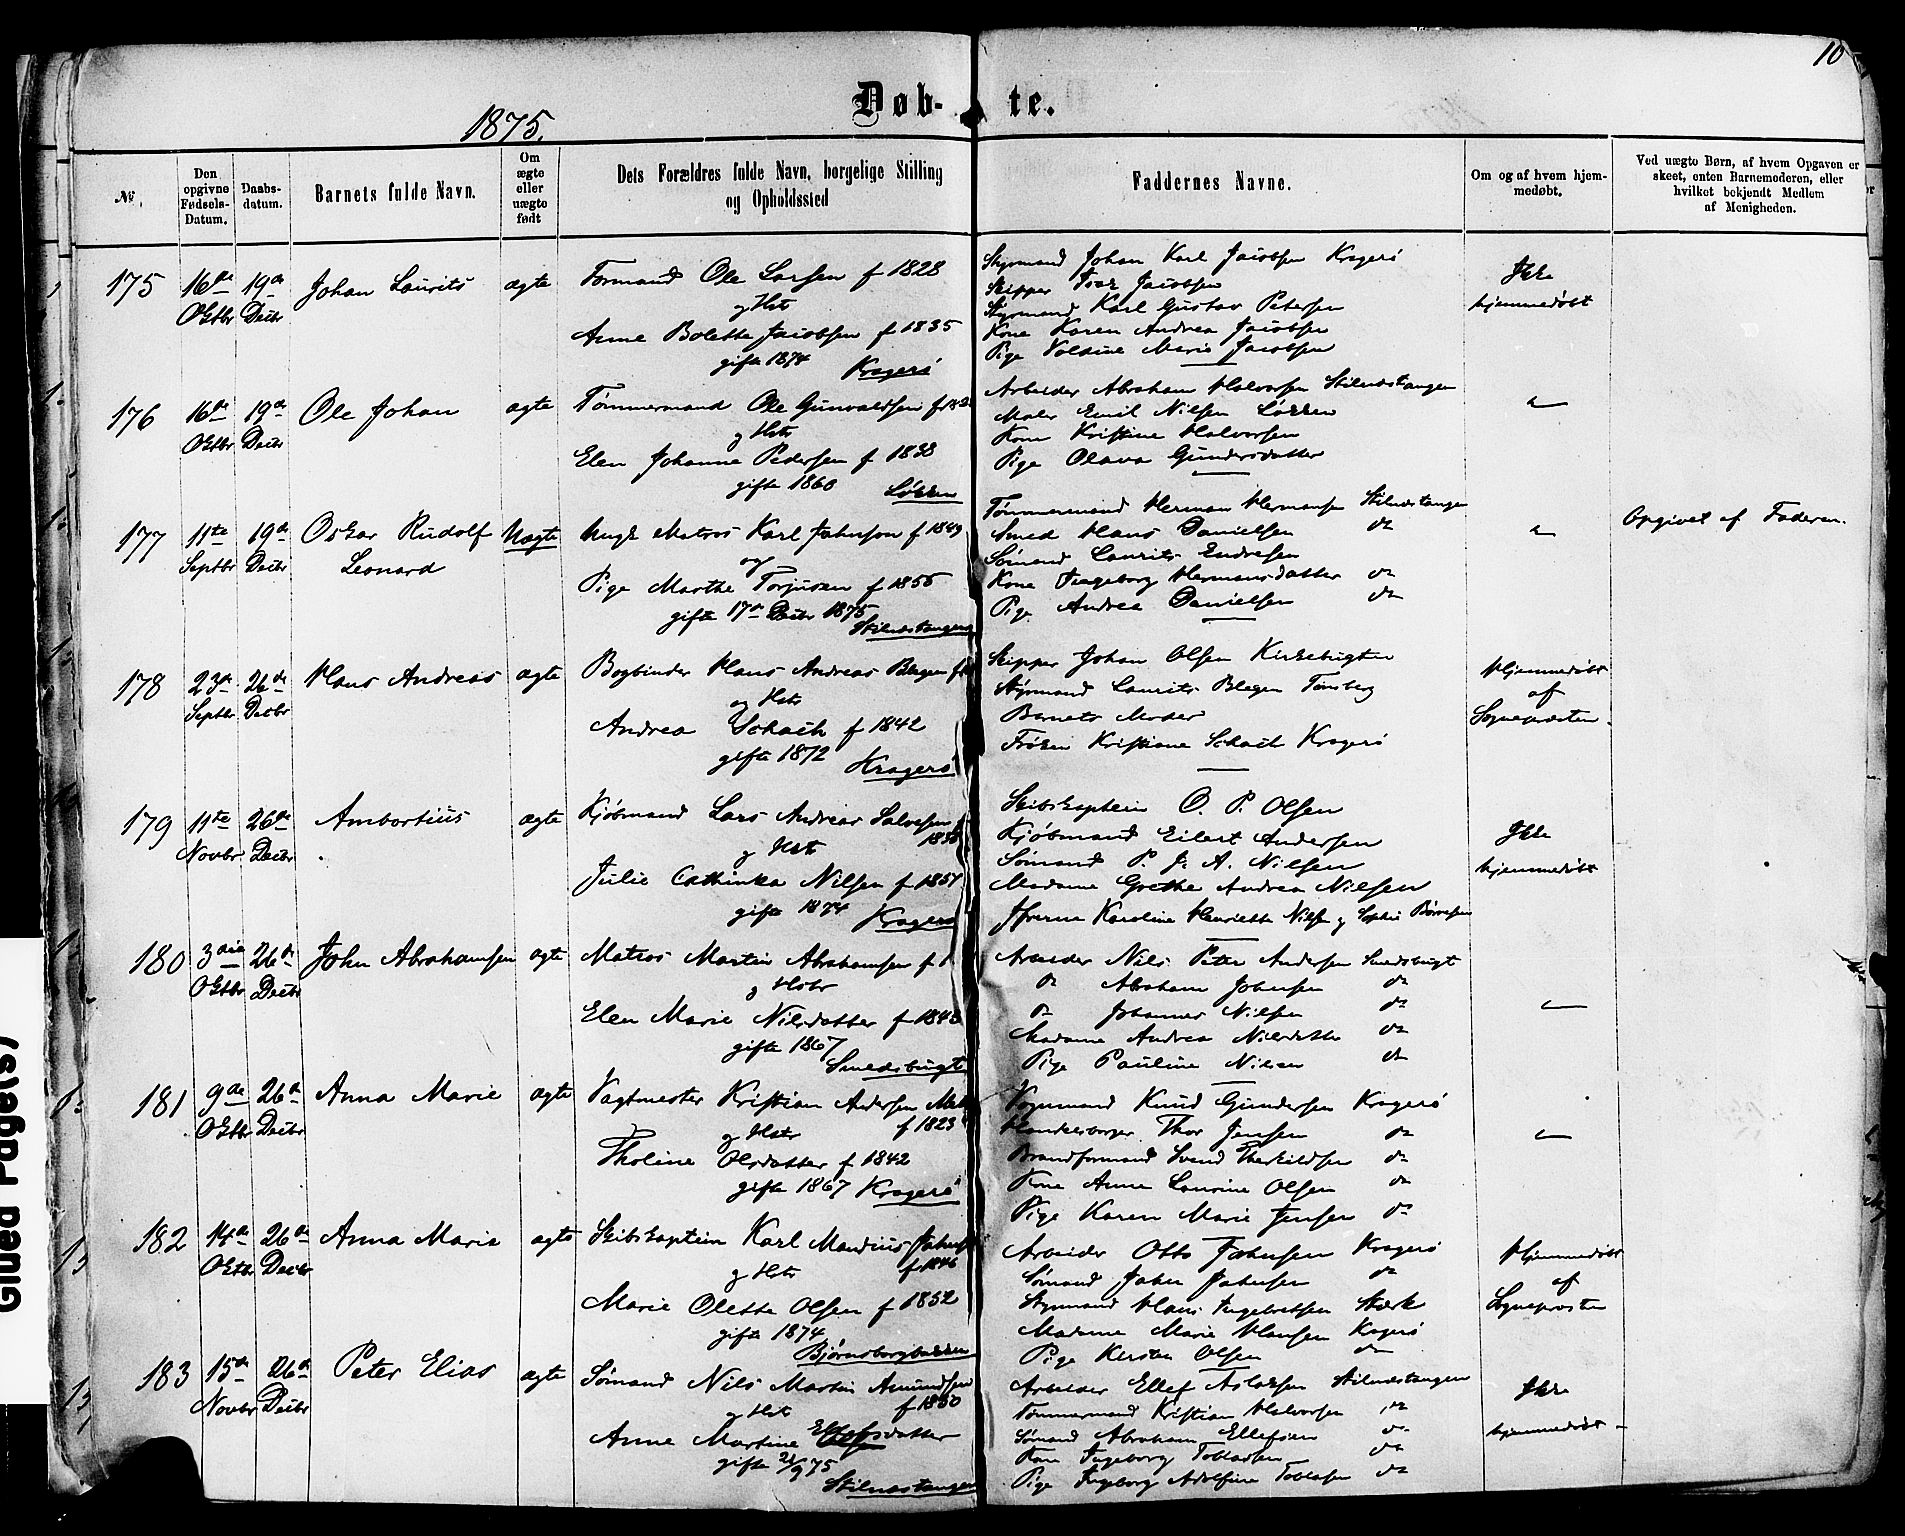 10
Døb- te.
1875.
№
Den opgivne Fødsels-Datum.
Daabs-datum.
Barnets fulde Navn.
Om ægte eller uægte født
Dets Forældres fulde Navn, borgelige Stilling og Opholdssted
Faddernes Navne.
Om og af hvem hjem-medøbt.
Ved uægte Børn, af hvem Opgaven er skeet, enten Barnemoderen, eller hvilket bekjendt Medlem af Menigheden.
175 16de Octbr 19de Decbr Johan Laurits ægte
Formand Ole Larsen f 1828
og Hstr
Anne Bolette Jacobsen f 1835
gifte 1874 Kragerö
Styrmand Johan Karl Jacobsen Kragerö
Skipper Isak Jacobsen
Styrmand Karl Gustav Petersen
Kone Karen Andrea Jacobsen
Pige Volstine Marie Jacobsen
Ikke
hjemmedøbt
176 16de Octbr 19de Decbr Ole Johan ægte
Tömmermand Ole Gunvaldsen
og Hstr
Elen Johanne Pedersen f 1838
gifte 1860 Løkken
Arbeider Abraham Halvorsen Stilnæstangen
Maler Emil Nilsen Løkken
Kone Kristine Halvorsen
Pige Olava Gundersdatter
177 11te Septbr 19de Decbr Oskar Rudolf Leonard Uægte
Ungk Matros Karl Johnson f 1849
og
Pige Marthe Torjusen f 1855
gifte 17de Decbr 1875
Stilnæstangen
Tömmermand Herman Hermansen Stilnæstangen
Smed Hans Danielsen do
Sømand Laurits Endresen
Kone Ingeborg Hermansdatter do
Pige Andrea Danielsen do
Opgivet af Faderen.
178 23de Septbr 26de Decbr Hans Andreas ægte
Bogbinder Hans Andreas Blegen
og Hstr
Andrea Schach f 1842
gifte 1872 Kragerö
Skipper Johan Olsen Kirkebugten
Styrmand Laurits Blegen Tønsberg
Barnets Moder
Frøken Kristiane Schach Kragerö
Hjemmedøbt
af
Sognepresten.
179 11te Novbr 26de Decbr Ambortius ægte
Kjøbmand Lars Andreas Salvesen
og Hstr
Julie Cathinka Nilsen f 1851
gifte 1874 Kragerö
Skibskaptein O. P. Olsen
Kjøbmand Eilert Andersen
Sømand P. J. A. Nilsen
Madame Grethe Andrea Nilsen
Jfrerne Karoline Henriette Nilsen og Sophie Børresen
Ikke
hjemmedøbt
180 3die Octbr 26de Decbr John Abrahamsen ægte
Matros Martin Abrahamsen
og Hstr
Elen Marie Nilsdatter f 1848
gifte 1867
Smedsbugt
Arbeider Nils Peter Andersen Smedsbugt
do Abraham Johnsen do
do Johannes Nilsen do
Madame Andrea Nilsdatter do
Pige Pauline Nilsen do
181 9de Octbr 26de Decbr Anna Marie ægte
Vagtmester Kristian Andersen
og Hstr f 1823
Tholine Olsdatter f 1842
gifte 1867 Kragerö
Vognmand Knud Gundersen Kragerö
Handelsborger Thor Jensen do
Brandformand Svend Therkildsen do
Kone Anne Laurine Olsen do
Pige Karen Marie Jensen do
182 14de Octbr 26de Decbr Anna Marie ægte
Skibskaptein Karl Mandius
og Hstr f 1846
Marie Olette Olsen f 1852
gifte 1874
Bjørnsborgbakken
Arbeider Otto Johnsen Kragerö
Sømand John Johnsen do
Styrmand Hans Ingebretsen
Madame Marie Hansen Kragerö
Pige Kirsten Olsen do
Hjemmedøbt
af
Sognepresten
183 15de Novbr 26de Decbr Peter Elias ægte
Sømand Nils Martin Amundsen
og Hstr f 1850
Anne Martine Ellefsdatter
gifte 21/9 75
Stilnæstangen
Arbeider Ellef Aslaksen Stilnæstangen
Tømmermand Kristian Halvorsen do
Sømand Abraham Ellefsen do
Kone Ingeborg Tobiasen do
Pige Ingeborg Adolfine Tobiasen do
Ikke
hjemmedøbt
Glued Page(s)